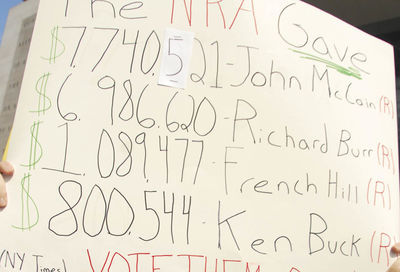 The NRA Gave
$7,740,521-John McCain (R)
$6.986.620-Richard Burr (R)
$1.089.477-French Hill (R)
$800.544-Ken Buck (R)
(NY Times) VOTE THEM